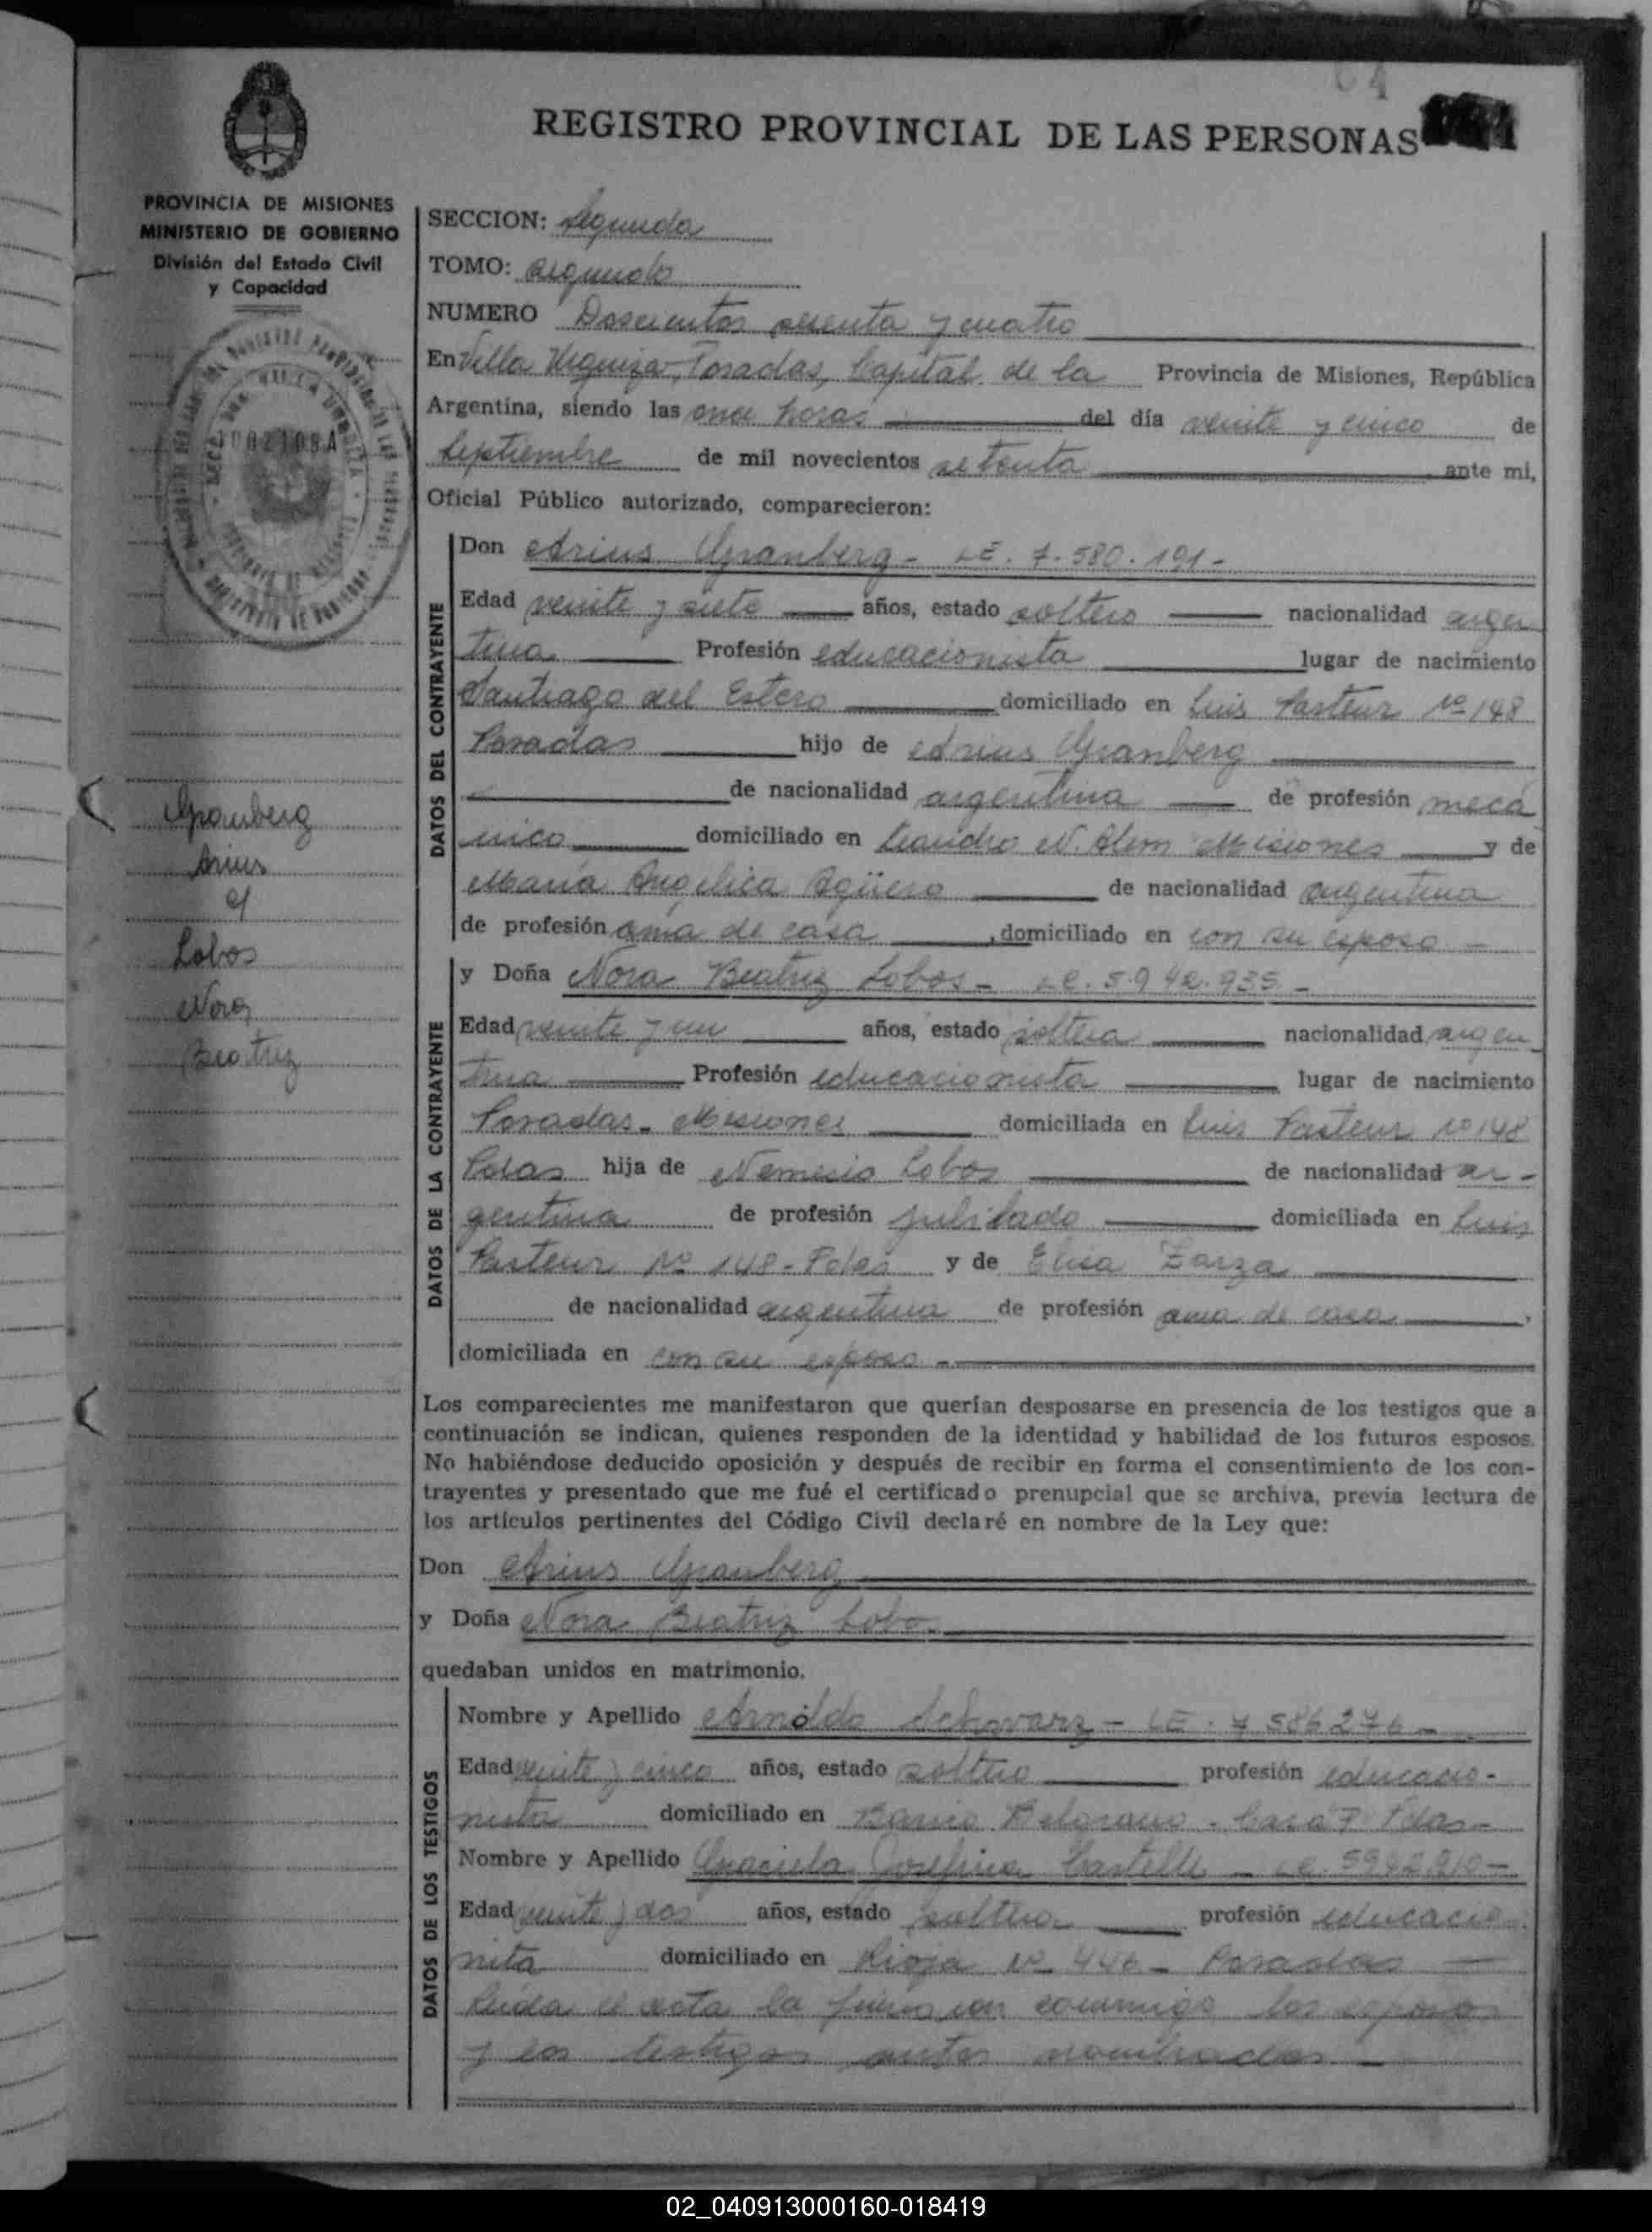 64
REGISTRO PROVINCIAL DE LAS PERSONAS
PROVINCIA DE MISIONES
MINISTERIO DE GOBIERNO
División del Estado Civil
y Capacidad
SECCION: Segunda
TOMO: Segundo
NUMERO Doscientos sesenta y cuatro
En Villa Urquiza, Posadas, Capital de la Provincia de Misiones, República
Argentina, siendo las once horas del día veinte y cinco de
Septiembre de mil novecientos setenta ante mi,
Oficial Público autorizado, comparecieron:
DATOS DEL CONTRAYENTE
Don Arius Granberg - LE. 7.580.191-
Edad veinte y siete años, estado soltero nacionalidad argen
tina Profesión educacionista lugar de nacimiento
Santiago del Estero domiciliado en Luis Pasteur Nº 148
Posadas hijo de Arius Granberg
de nacionalidad argentina de profesión mecá
nico domiciliado en Leandro N. Alem Misiones y de
María Angélica Agüero de nacionalidad argentina
de profesión ama de casa, domiciliado en con su esposo -
Granberg
Arius
c/
Lobos
Nora
Beatriz
DATOS DE LA CONTRAYENTE
y Doña Nora Beatriz Lobos - LC. 5.942.935 -
Edad veinte y un años, estado soltera nacionalidad argen
tina Profesión educacionista lugar de nacimiento
Posadas - Misiones domiciliada en Luis Pasteur Nº 148
Pdas hija de Nemesio Lobos de nacionalidad ar-
gentina de profesión jubilado domiciliada en Luis
Pasteur Nº 148 - Pdas y de Elisa Zarza
de nacionalidad argentina de profesión ama de casa,
domiciliada en con su esposo -
Los comparecientes me manifestaron que querían desposarse en presencia de los testigos que a
continuación se indican, quienes responden de la identidad y habilidad de los futuros esposos.
No habiéndose deducido oposición y después de recibir en forma el consentimiento de los con-
trayentes y presentado que me fué el certificado prenupcial que se archiva, previa lectura de
los artículos pertinentes del Código Civil declaré en nombre de la Ley que:
Don Arius Granberg
y Doña Nora Beatriz Lobos
quedaban unidos en matrimonio.
DATOS DE LOS TESTIGOS
Nombre y Apellido Arnoldo Schovarz - LE. 7586276 -
Edad veinte y cinco años, estado soltero profesión educacio-
nista domiciliado en Barrio Belgrano - Casa 7 Pdas -
Nombre y Apellido Graciela Josefina Castelli - LC. 5942910 -
Edad veinte y dos años, estado soltera profesión educacio
nita domiciliado en Rioja Nº 446 - Posadas -
Leida el acta la firman conmigo los esposos
y los testigos antes nombrados -
02_040913000160-018419